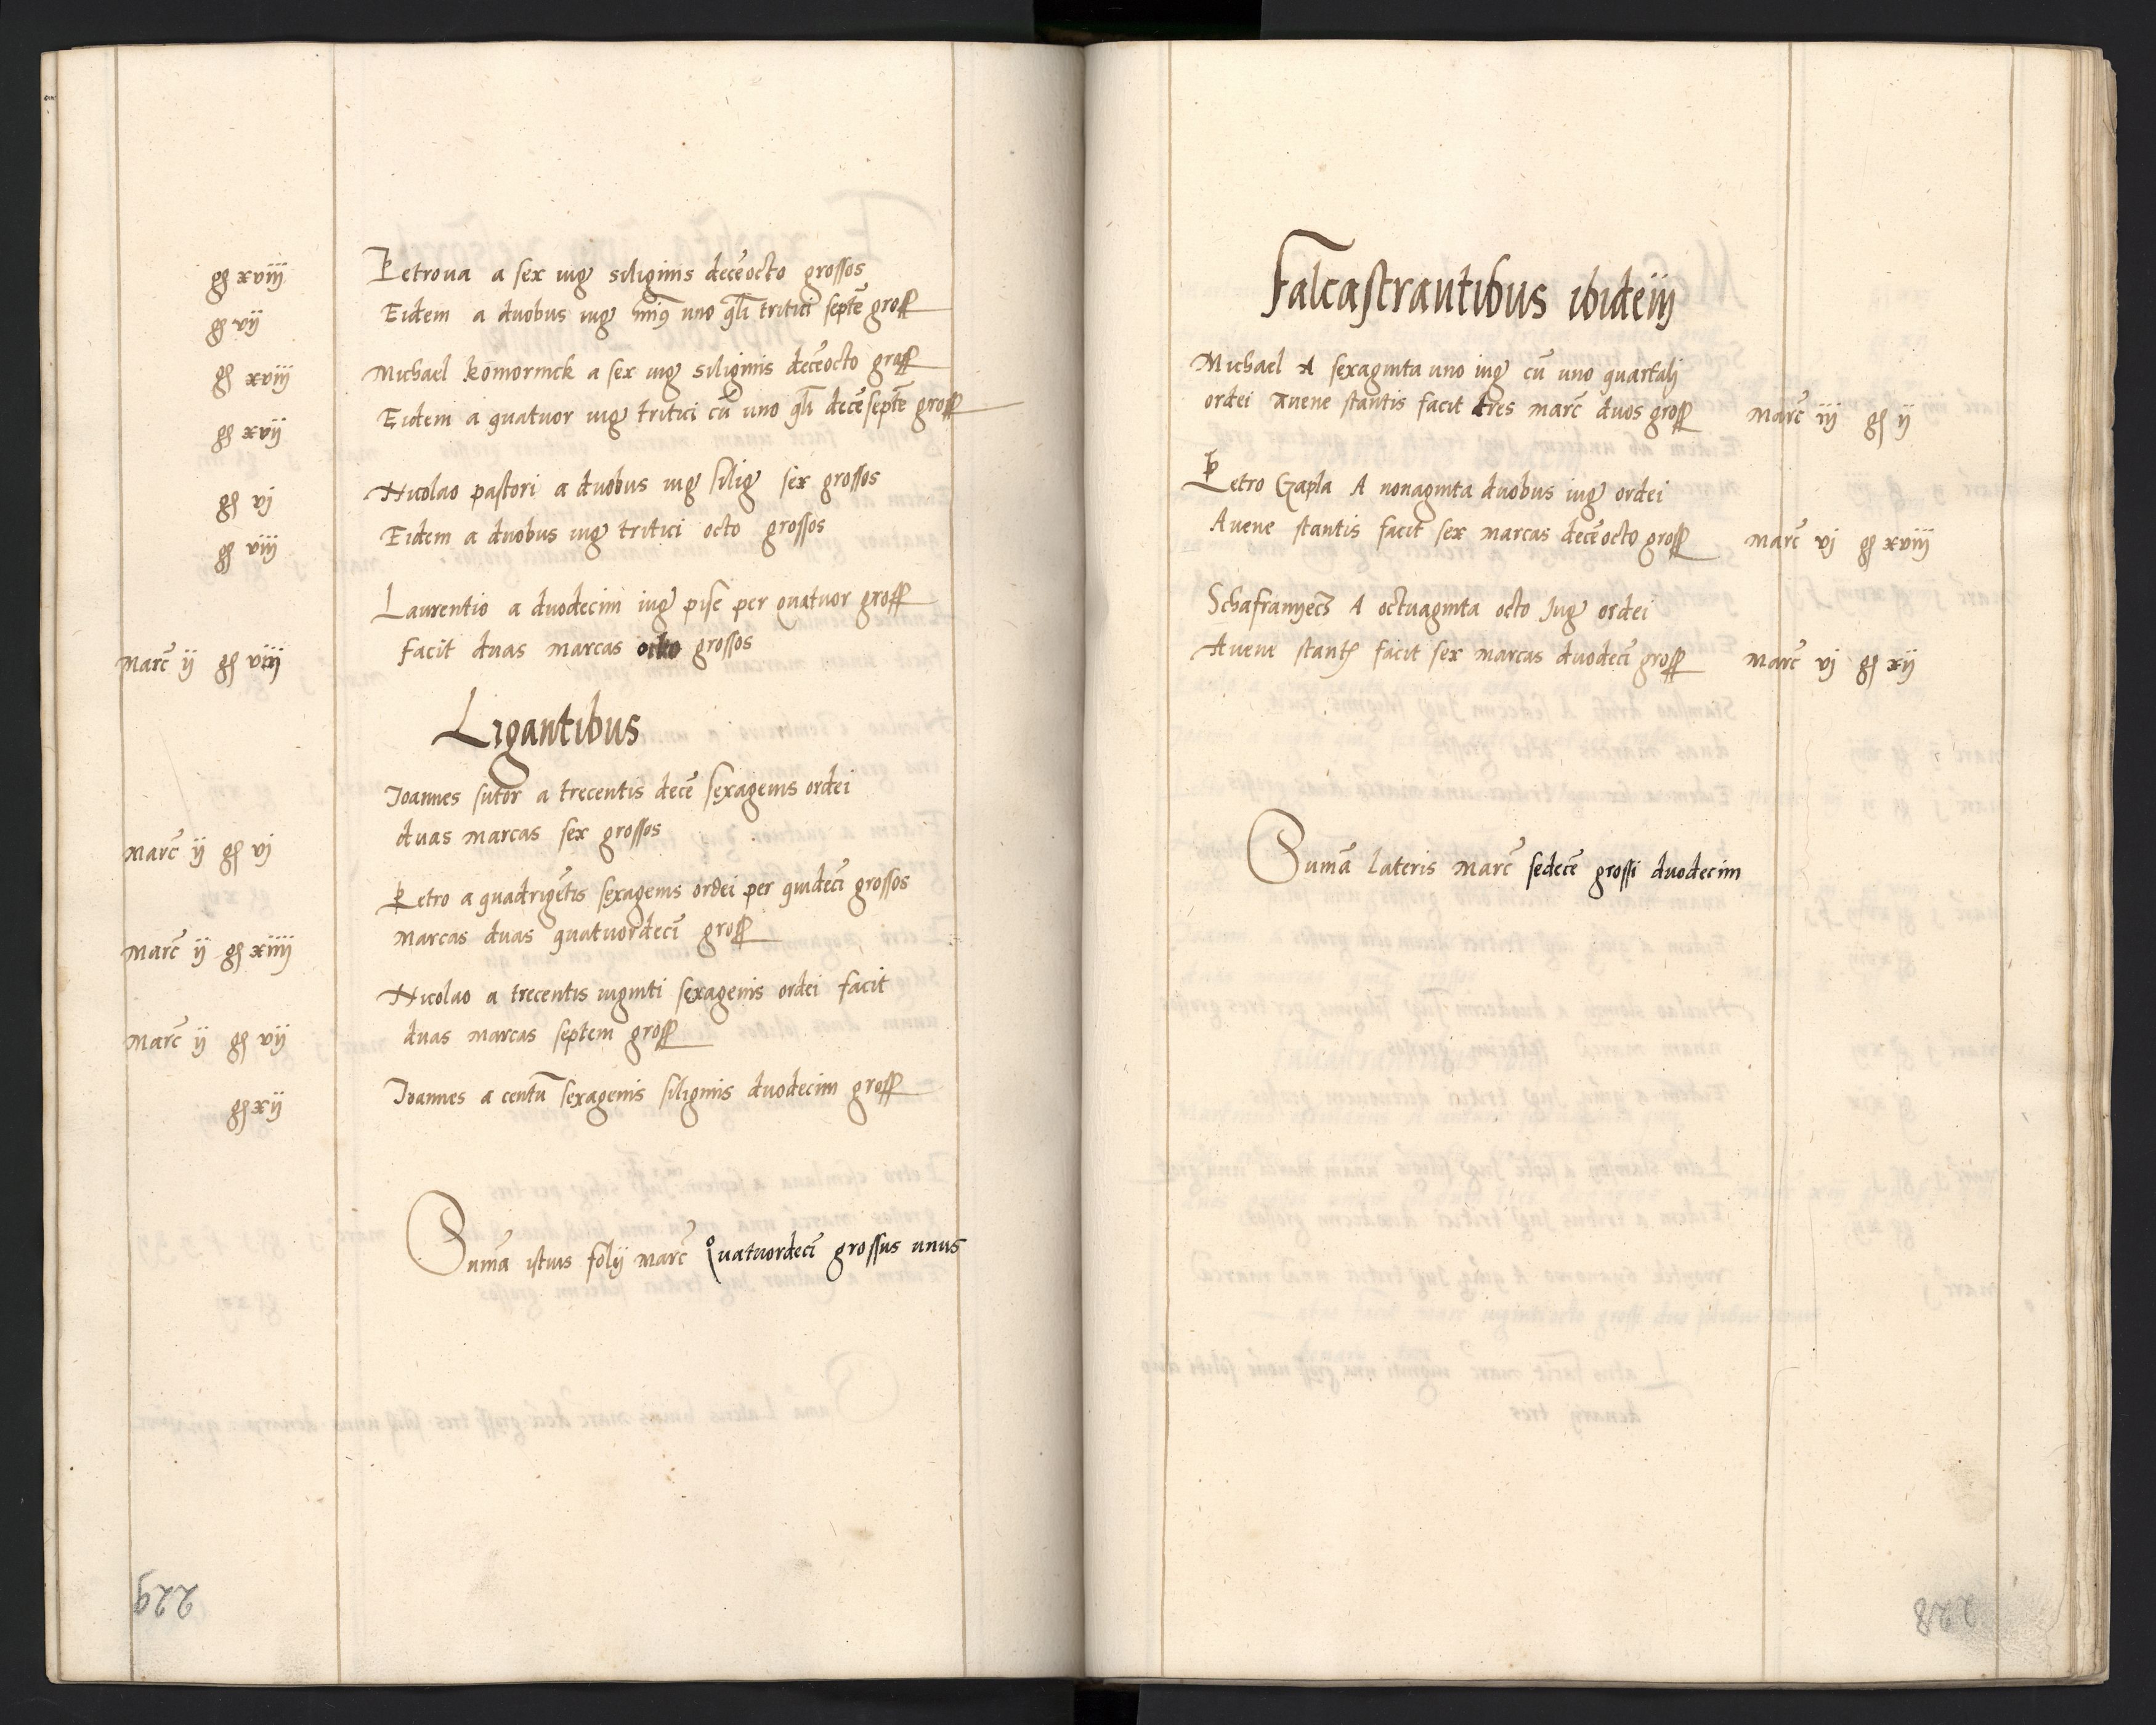 gỹ xviij Petroua a sex iug siliginis decẽocto grossos
gỹ vij Eidem a duobus iug min9 uno qrli tritici septẽ gross
gỹ xviij Michael komornick a sex iug siliginis decẽocto gross
gỹ xvij Eidem a quatuor iug tritici cũ uno qrli decẽseptẽ gross
gỹ vj Nicolao pastori a duobus iug silig sex grossos
gỹ viij Eidem a duobus iug tritici octo grossos
Laurentio a duodecim iug pise per quatuor gross
Marc̃ ij gỹ viij facit duas marcas octo grossos
Ligantibus
Joannes sutor a trecentis decẽ sexagenis ordei
Marc̃ ij gỹ vj duas marcas sex grossos
Petro a quadrigẽtis sexagenis ordei per quidecĩ grossos
Marc̃ ij gỹ xiiij Marcas duas quatuordecĩ gross
Nicolao a trecentis viginti sexagenis ordei facit
Marc̃ ij gỹ vij duas marcas septem gross
gỹ xij Joannes a centũ sexagenis siliginis duodecim gross
Sumã istius folij Marc̃ Quatuordecĩ grossus unus
229
Falcastrantibus ibidem
Michael A sexaginta uno iug cũ uno quartalj
ordei Auene stantis facit tres marc̃ duos gross Marc̃ iij gỹ ij
Petro Gapla A nonaginta duobus iug ordei
Auene stantis facit sex marcas decẽocto gross Marc̃ vj gỹ xviij
Schafranyecz A octuaginta octo Jug ordei
Auene stant facit sex marcas duodecĩ gross Marc̃ vj gỹ xij
Sumã lateris Marc̃ sedecẽ grossi duodecim
228